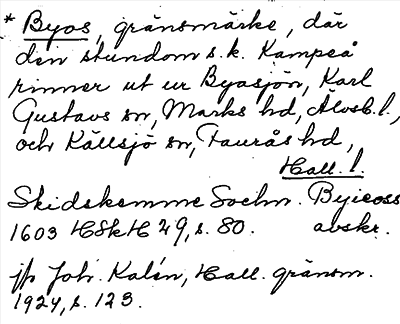 * Byos, gränsmärke, där
den stundom s.k. Kampeå
rinner ut ur Byasjön, Karl
Gustavs sn, Marks hd, Älvsb. l.,
och Källsjö sn, Faurås hd,
Hall. l.
Skidskemme Sochn. Byieoss
1603 HSkH 29, s. 80. avskr.
jfr Joh. Kalén, Hall. gränsm.
1924, s. 123.